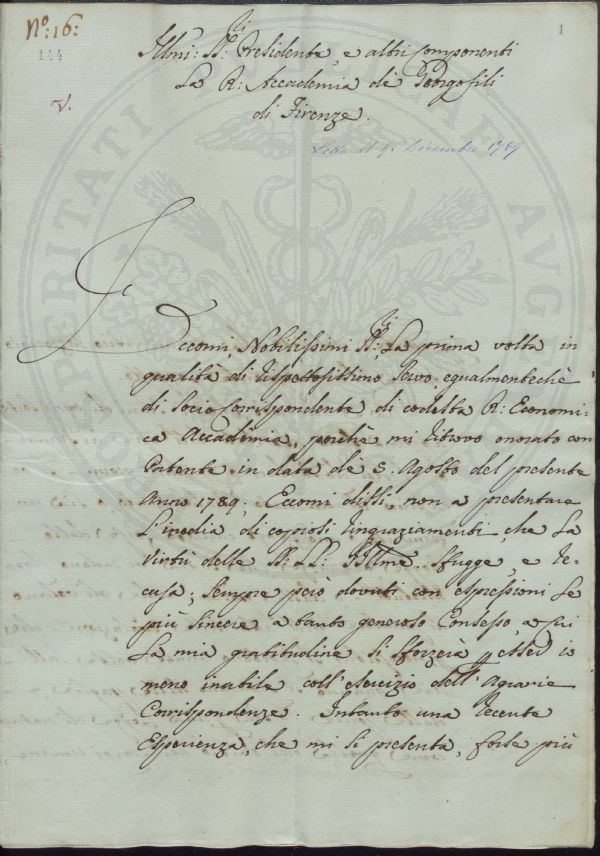 N.o: 16:
1
144
V.
Illmi: SS:ri Presidente, e altri Componenti
La R: Accademia de' Georgofili
di Firenze.
Letta il 9. Dicembre 1789
Eccomi, Nobilissimi SS:ri La prima volta in
qualità di rispettosissimo Servo, egualmenteche
di Socio Corrispondente di codesta R: Economi-
ca Accademia, poichè mi ritrovo onorato con
Patente in data de' 5. Agosto del presente
Anno 1789. Eccomi dissi, non a presentare
L'inedia di copiosi ringraziamenti, che La
Virtù delle SS: LL: Illme. sfugge, e re-
cusa; Sempre però dovuti con espressioni Le
più Sincere a tanto generoso Consesso, a cui
La mia gratitudine Si Sforzerà esser io
meno inabile coll'esercizio dell'Agrarie
Corrispondenze. Intanto una recente
Esperienza, che mi Si presenta, forse più
PROSPERITATI AVG